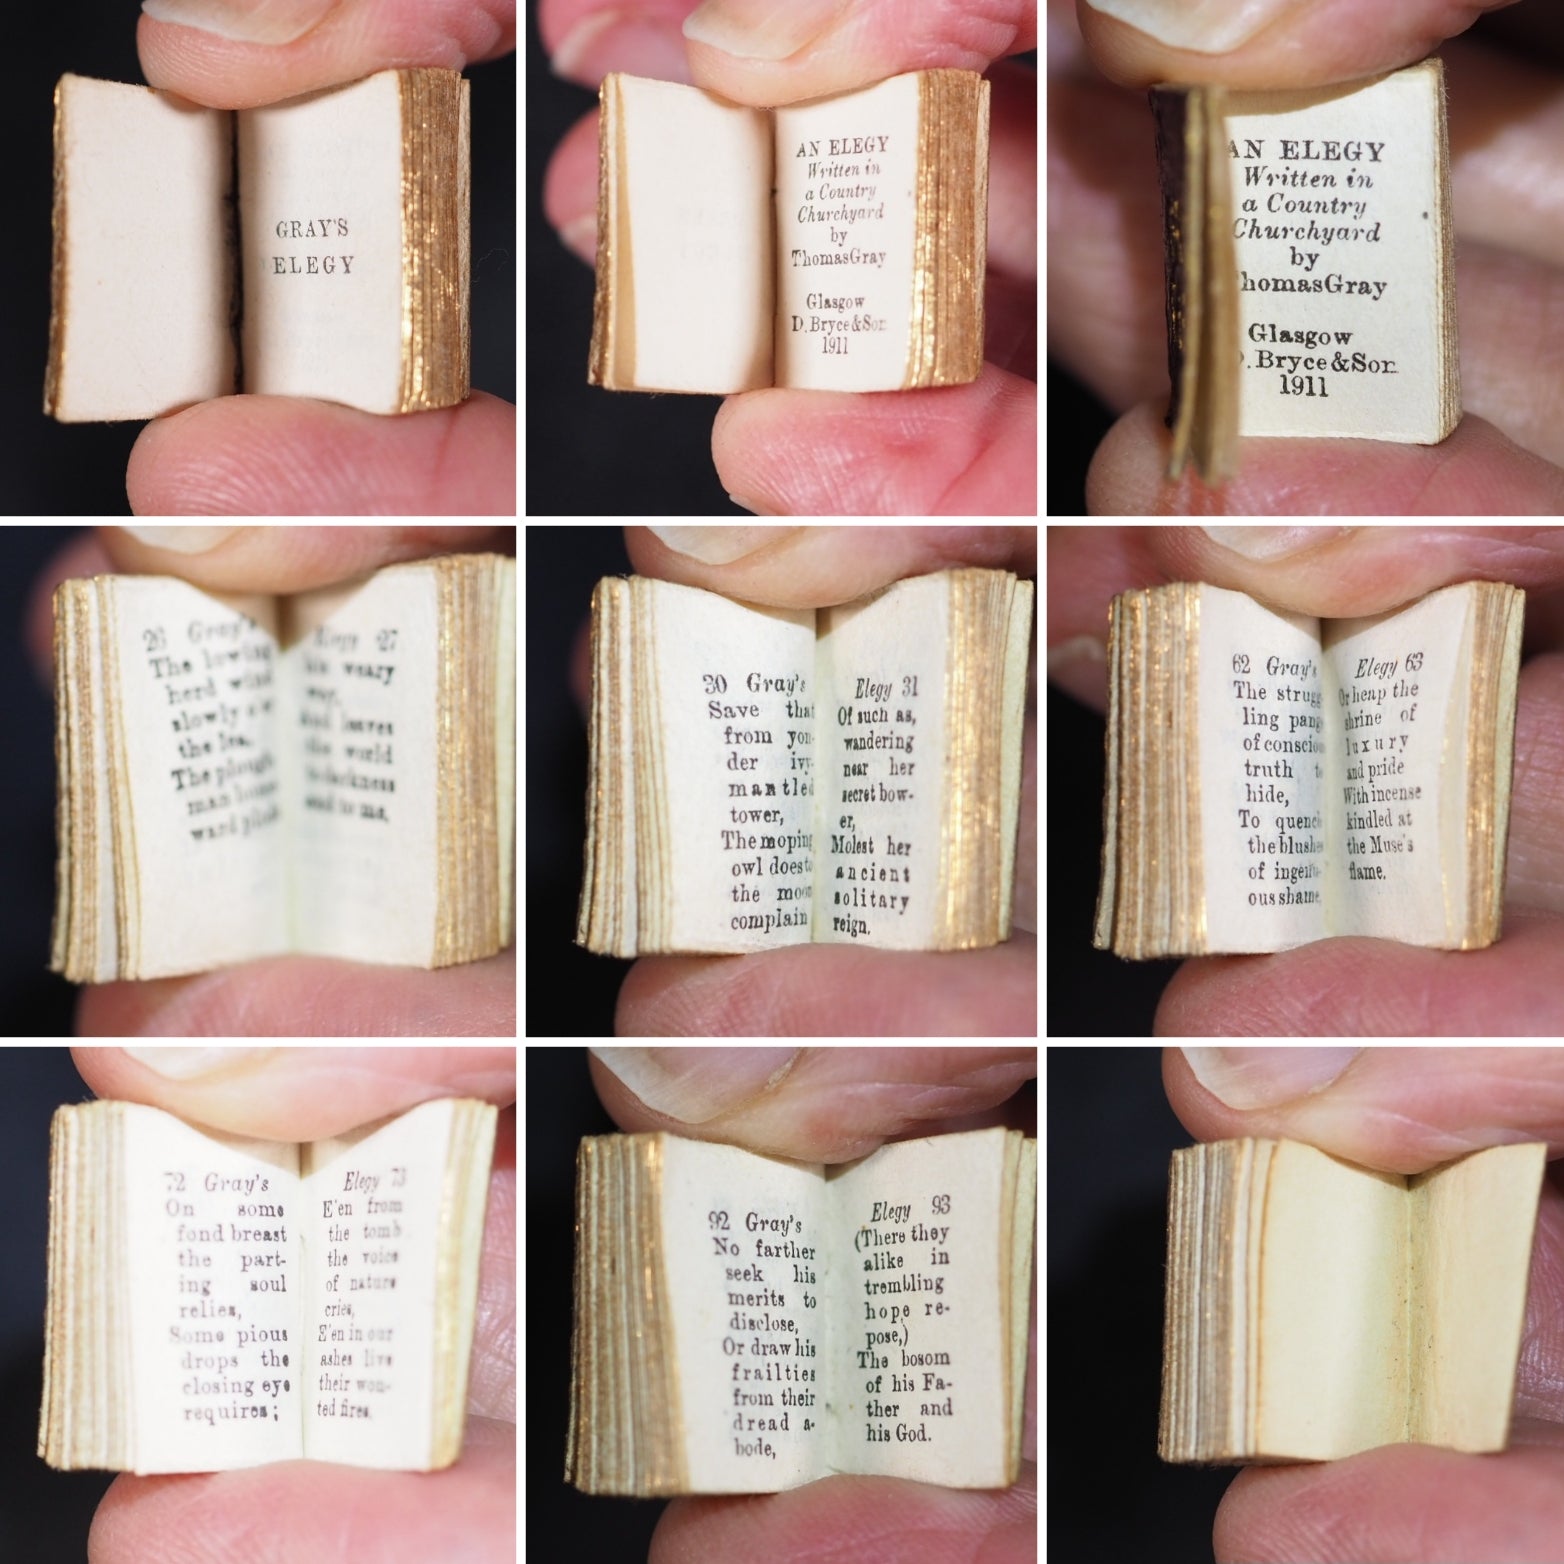 GRAY'S
ELEGY
AN ELEGY
Written in
a Country
Churchyard
by
ThomasGray
Glasgow
D. Bryce & Son
1911
AN ELEGY
Written in
a Country
Churchyard
by
homasGray
Glasgow
. Bryce & Son
1911
26 Gray's
The lowing
herd wind
slowly o'er
the lea,
The plough
man home
ward plods
Elegy 27
his weary
way,
And leaves
the world
to darkness
and to me.
30 Gray's
Save that
from yon-
der ivy-
mantled
tower,
The moping
owl does to
the moon
complain
Elegy 31
Of such as,
wandering
near her
secret bow-
er,
Molest her
ancient
solitary
reign.
62 Gray's
The strug
ling pang
of conscio
truth to
hide,
To quench
the blushe
of ingenu-
ous shame,
Elegy 63
Or heap the
shrine of
luxury
and pride
With incense
kindled at
the Muse's
flame.
72 Gray's
On some
fond breast
the part-
ing soul
relies,
Some pious
drops the
closing eye
requires;
Elegy 73
E'en from
the tomb
the voice
of nature
cries,
E'en in our
ashes live
their won-
ted fires.
92 Gray's
No farther
seek his
merits to
disclose,
Or draw his
frailties
from their
dread a-
bode,
Elegy 93
(There they
alike in
trembling
hope re-
pose,)
The bosom
of his Fa-
ther and
his God.